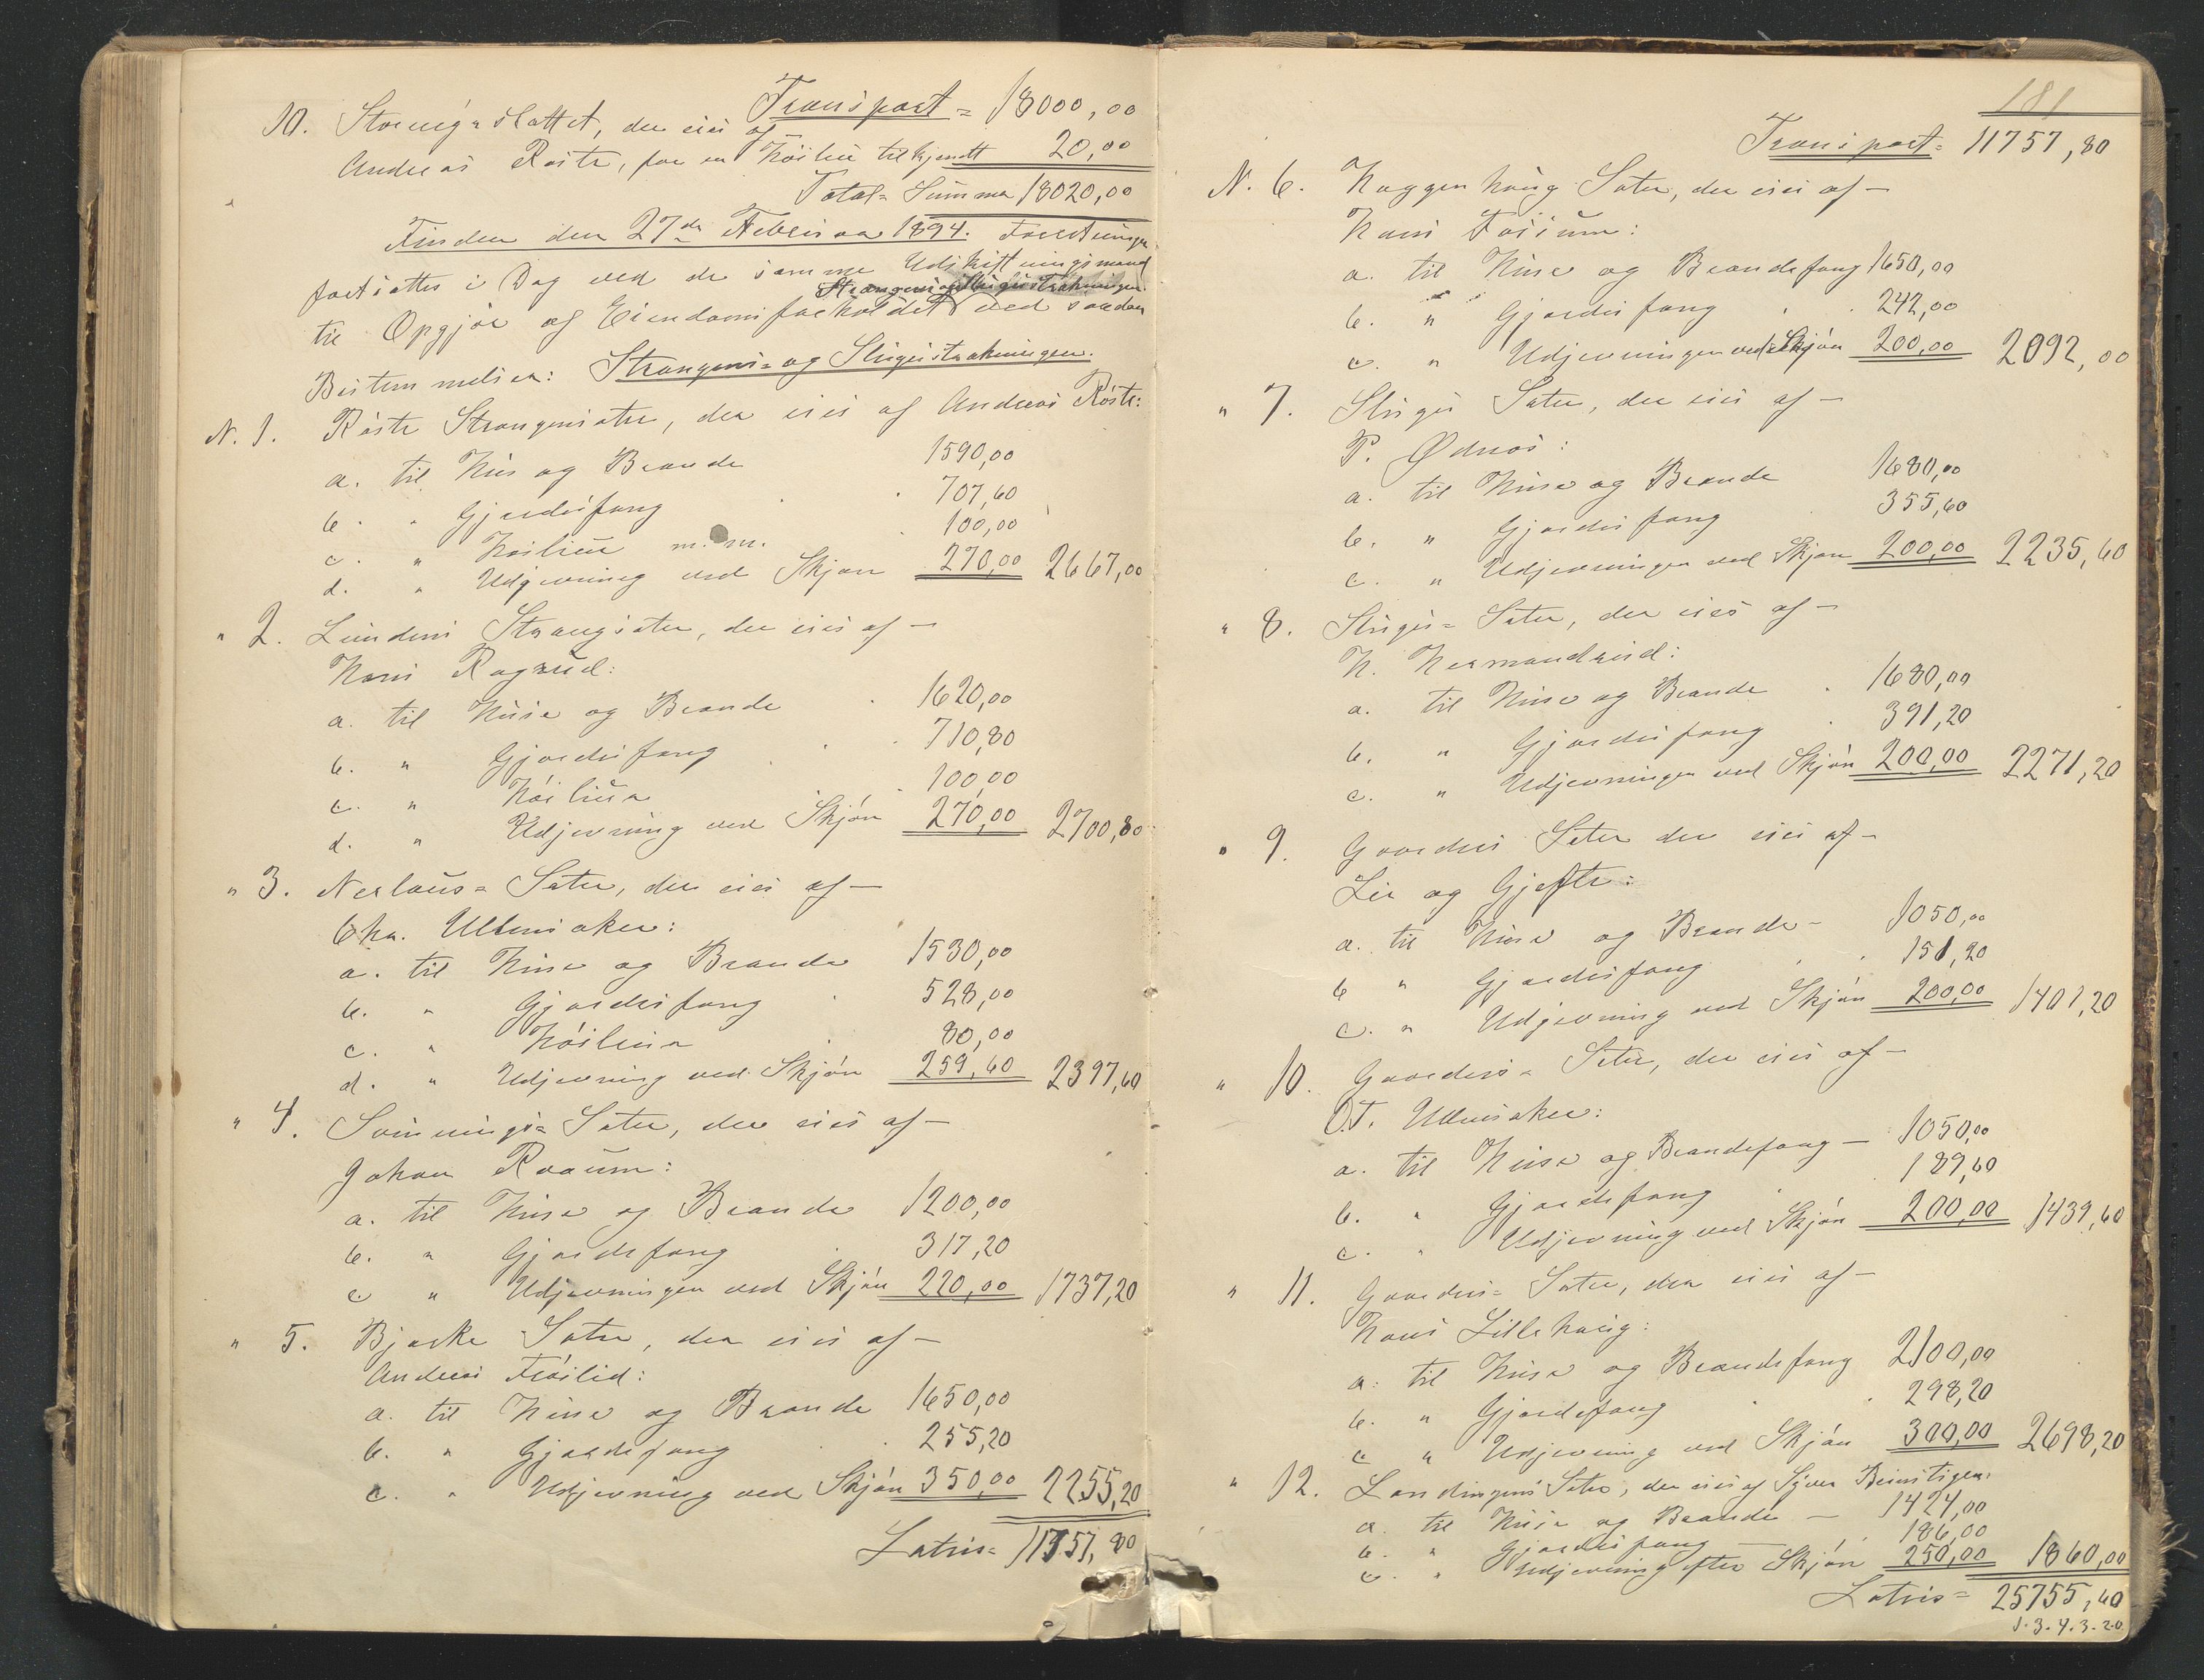 Transport = 18000,00
10. Storeng-slattet, der eies af
Andreas Røste, for en Høilöe tilkjendt 20,00
Total-Summa 18020,00
Finden den 27de Februar 1894. Forretningen
fortsattes i Dag ved de samme Udskiftningsmænd
til Opgjør af Eiendomsforholdet ved saadan
Bestemmelser: Strangens- og Slugustrakningen.
N. 1. Røste Strangensæter, der eies af Andreas Røste:
a. til Hus og Brænde 1590,00
b. " Gjærdesfang 707,60
c. " Høilöer m.m. 100,00
d. " Udjevning ved Skjøn 270,00 2667,00
" 2. Lundens Strangsæter, der eies af —
Hans Rograd:
a. til Huse og Brænde 1620,00
b. " Gjærdesfang 710,80
c. " Høilöer 100,00
d. " Udjevning ved Skjøn 270,00 2700,80
" 3. Nerlaus- Sæter, der eies af —
Chr. Ullensaker:
a. til Huse og Brænde 1530,00
b. " Gjærdesfang 528,00
c. " Høilöer 80,00
d. " Udjevning ved Skjøn 259,60 2397,60
" 4. Svennings- Sæter, der eies af —
Johan Raaum:
a. til Huse og Brænde 1200,00
b. " Gjærdefang 317,20
c " Udjevningen ved Skjøn 220,00 1737,20
" 5. Bjørke Sæter, der eies af —
Andreas Frøslid:
a. til Huse og Brænde 1650,00
b. " Gjærdefang 255,20
c. " Udjevning ved Skjøn 350,00 2255,20
Latris= 11757,80
181
Transport= 11757,80
N. 6. Haggenhaug Sæter, der eies af —
Hans Fossum:
a. til Huse og Brændefang 1650,00
b. " Gjærdesfang 242,00
c. " Udjevningen ved Skjøn 200,00 2092,00
" 7. Sluges Sæter, der eies af —
P. Ødnæs:
a. til Huse og Brænde 1680,00
b. " Gjærdesfang 355,60
c. " Udjevningen ved Skjøn 200,00 2235,60
" 8. Sluges- Sæter, der eies af —
H. Hermandrud:
a. til Huse og Brænde 1680,00
b. " Gjærdesfang 391,20
c. " Udjevningen ved Skjøn 200,00 2271,20
" 9. Gaarders Sæter der eies af —
Lie og Gjefte:
a. til Huse og Brænde — 1050,00
b " Gjærdesfang 151,20
c. " Udjevning ved Skjøn 200,00 1401,20
" 10. Gaarders- Sæter, der eies af —
O.T. Ullensaker:
a. til Huse og Brændefang — 1050,00
b. " Gjærdefang 189,60
c. " Udjevning ved Skjøn 200,00 1439,60
" 11. Gaarders- Sæter, der eies af —
Hans Lillehaug:
a. til Huse og Brændefang 2100,00
b. " Gjærdefang 298,20
c " Udjevning ved Skjøn 300,00 2698,20
" 12. Landingens Sæter, der eies af Syver Beinstigen.
a til Huse og Brænde — 1424,00
b. " Gjærdesfang — 186,00
c. " Udjevning efter Skjøn 250,00 1860,00
Latris= 25755,40
1.3.4.3.20